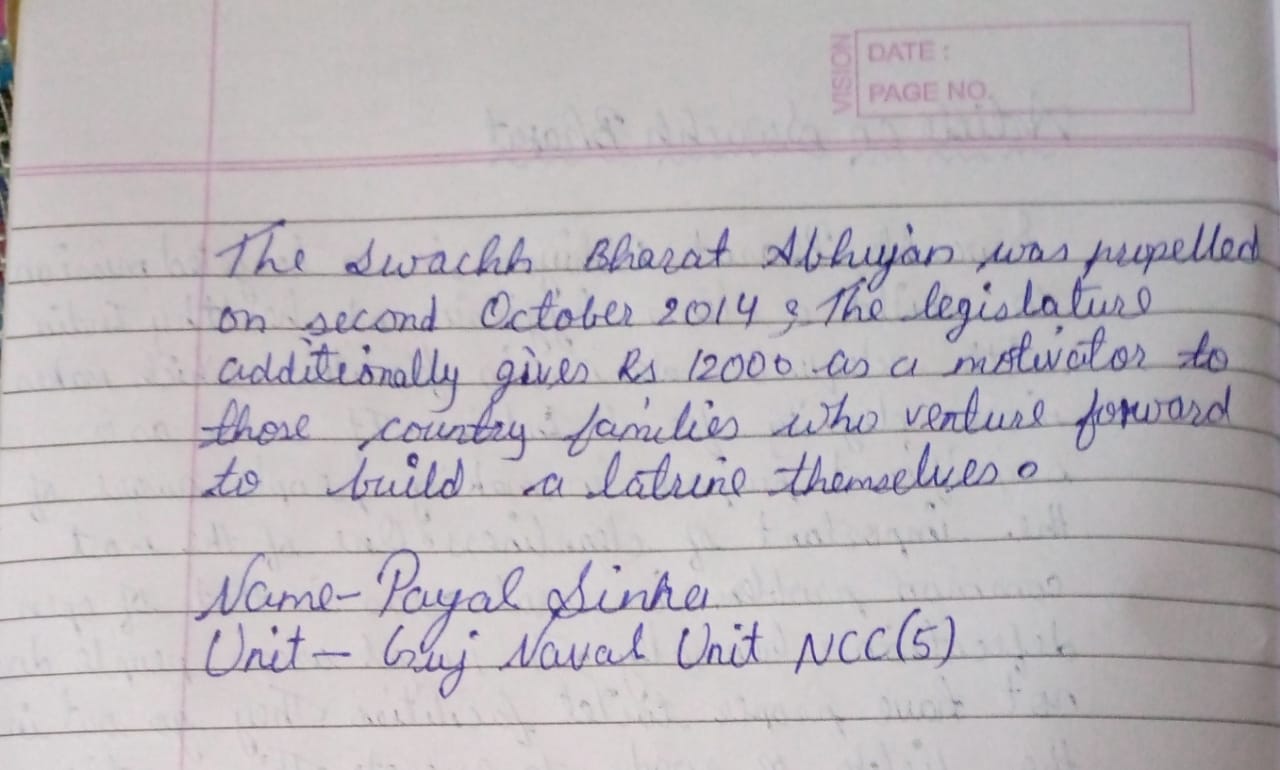 VISION
DATE :
PAGE NO.
The Swachh Bharat Abhiyan was propelled
on second October 2014, The legislature
additionally gives Rs 12000 as a motivator to
those country families who venture forward
to build a latrine themselves.
Name- Payal Sinha
Unit - Guj Naval Unit NCC(5)